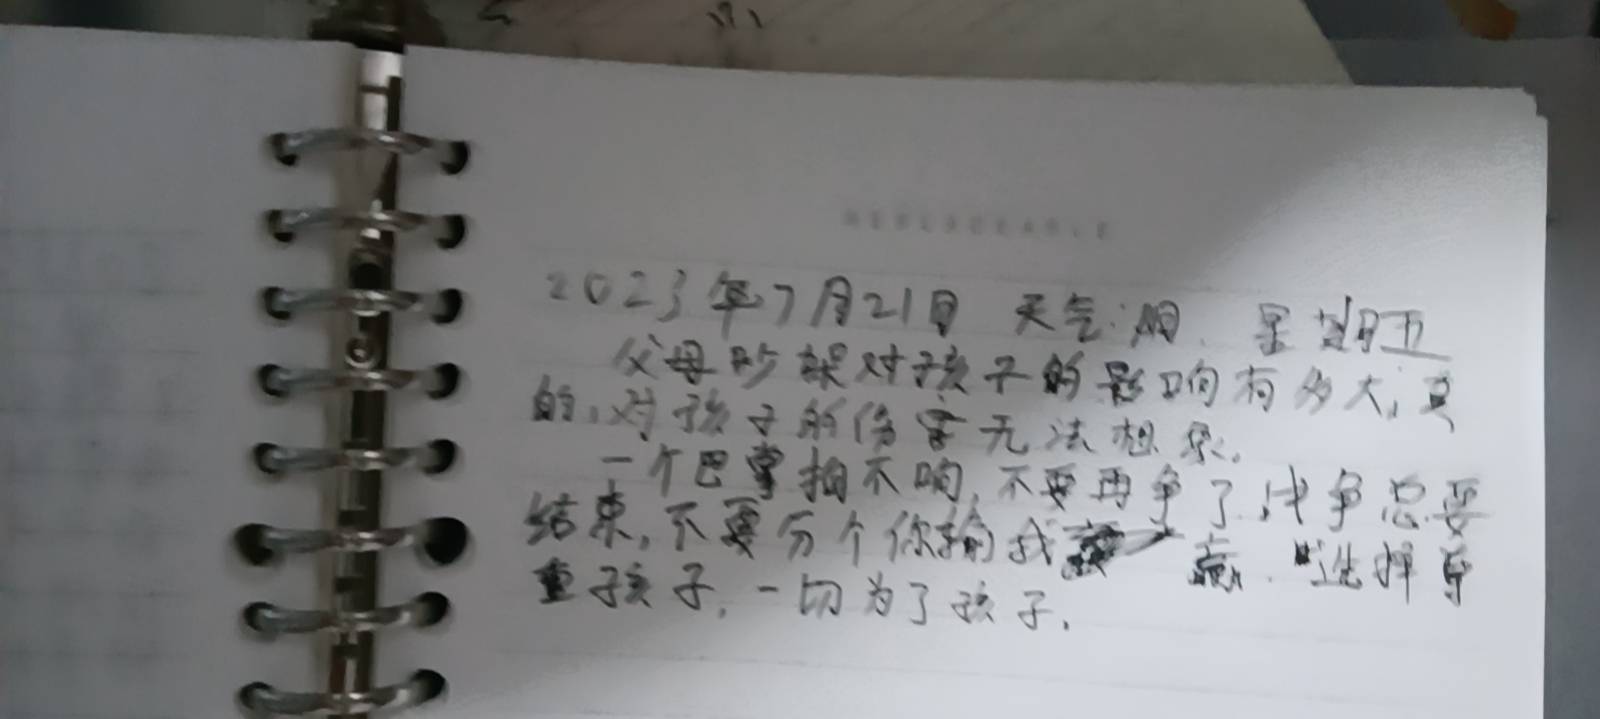 2023年7月21日 天气:阴. 星期五
父母吵架对孩子的影响有多大,真
的,对孩子的伤害无法想象.
一个巴掌拍不响,不要再争了战争总要
结束,不要分个你输我 赢.选择尊
重孩子,一切为了孩子.